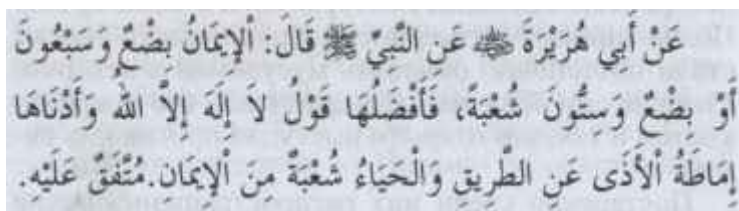 عَنْ أَبِي هُرَيْرَةَ ﵁ عَنِ النَّبِيِّ ﷺ قَالَ: اْلإِيمَانُ بِضْعٌ وَسَبْعُونَ
أَوْ بِضْعٌ وَسِتُّونَ شُعْبَةً، فَأَفْضَلُهَا قَوْلُ لاَ إِلَهَ إِلاَّ اللهُ وَأَدْنَاهَا
إِمَاطَةُ اْلأَذَى عَنِ الطَّرِيقِ وَالْحَيَاءُ شُعْبَةٌ مِنَ اْلإِيمَانِ.مُتَّفَقٌ عَلَيْهِ.